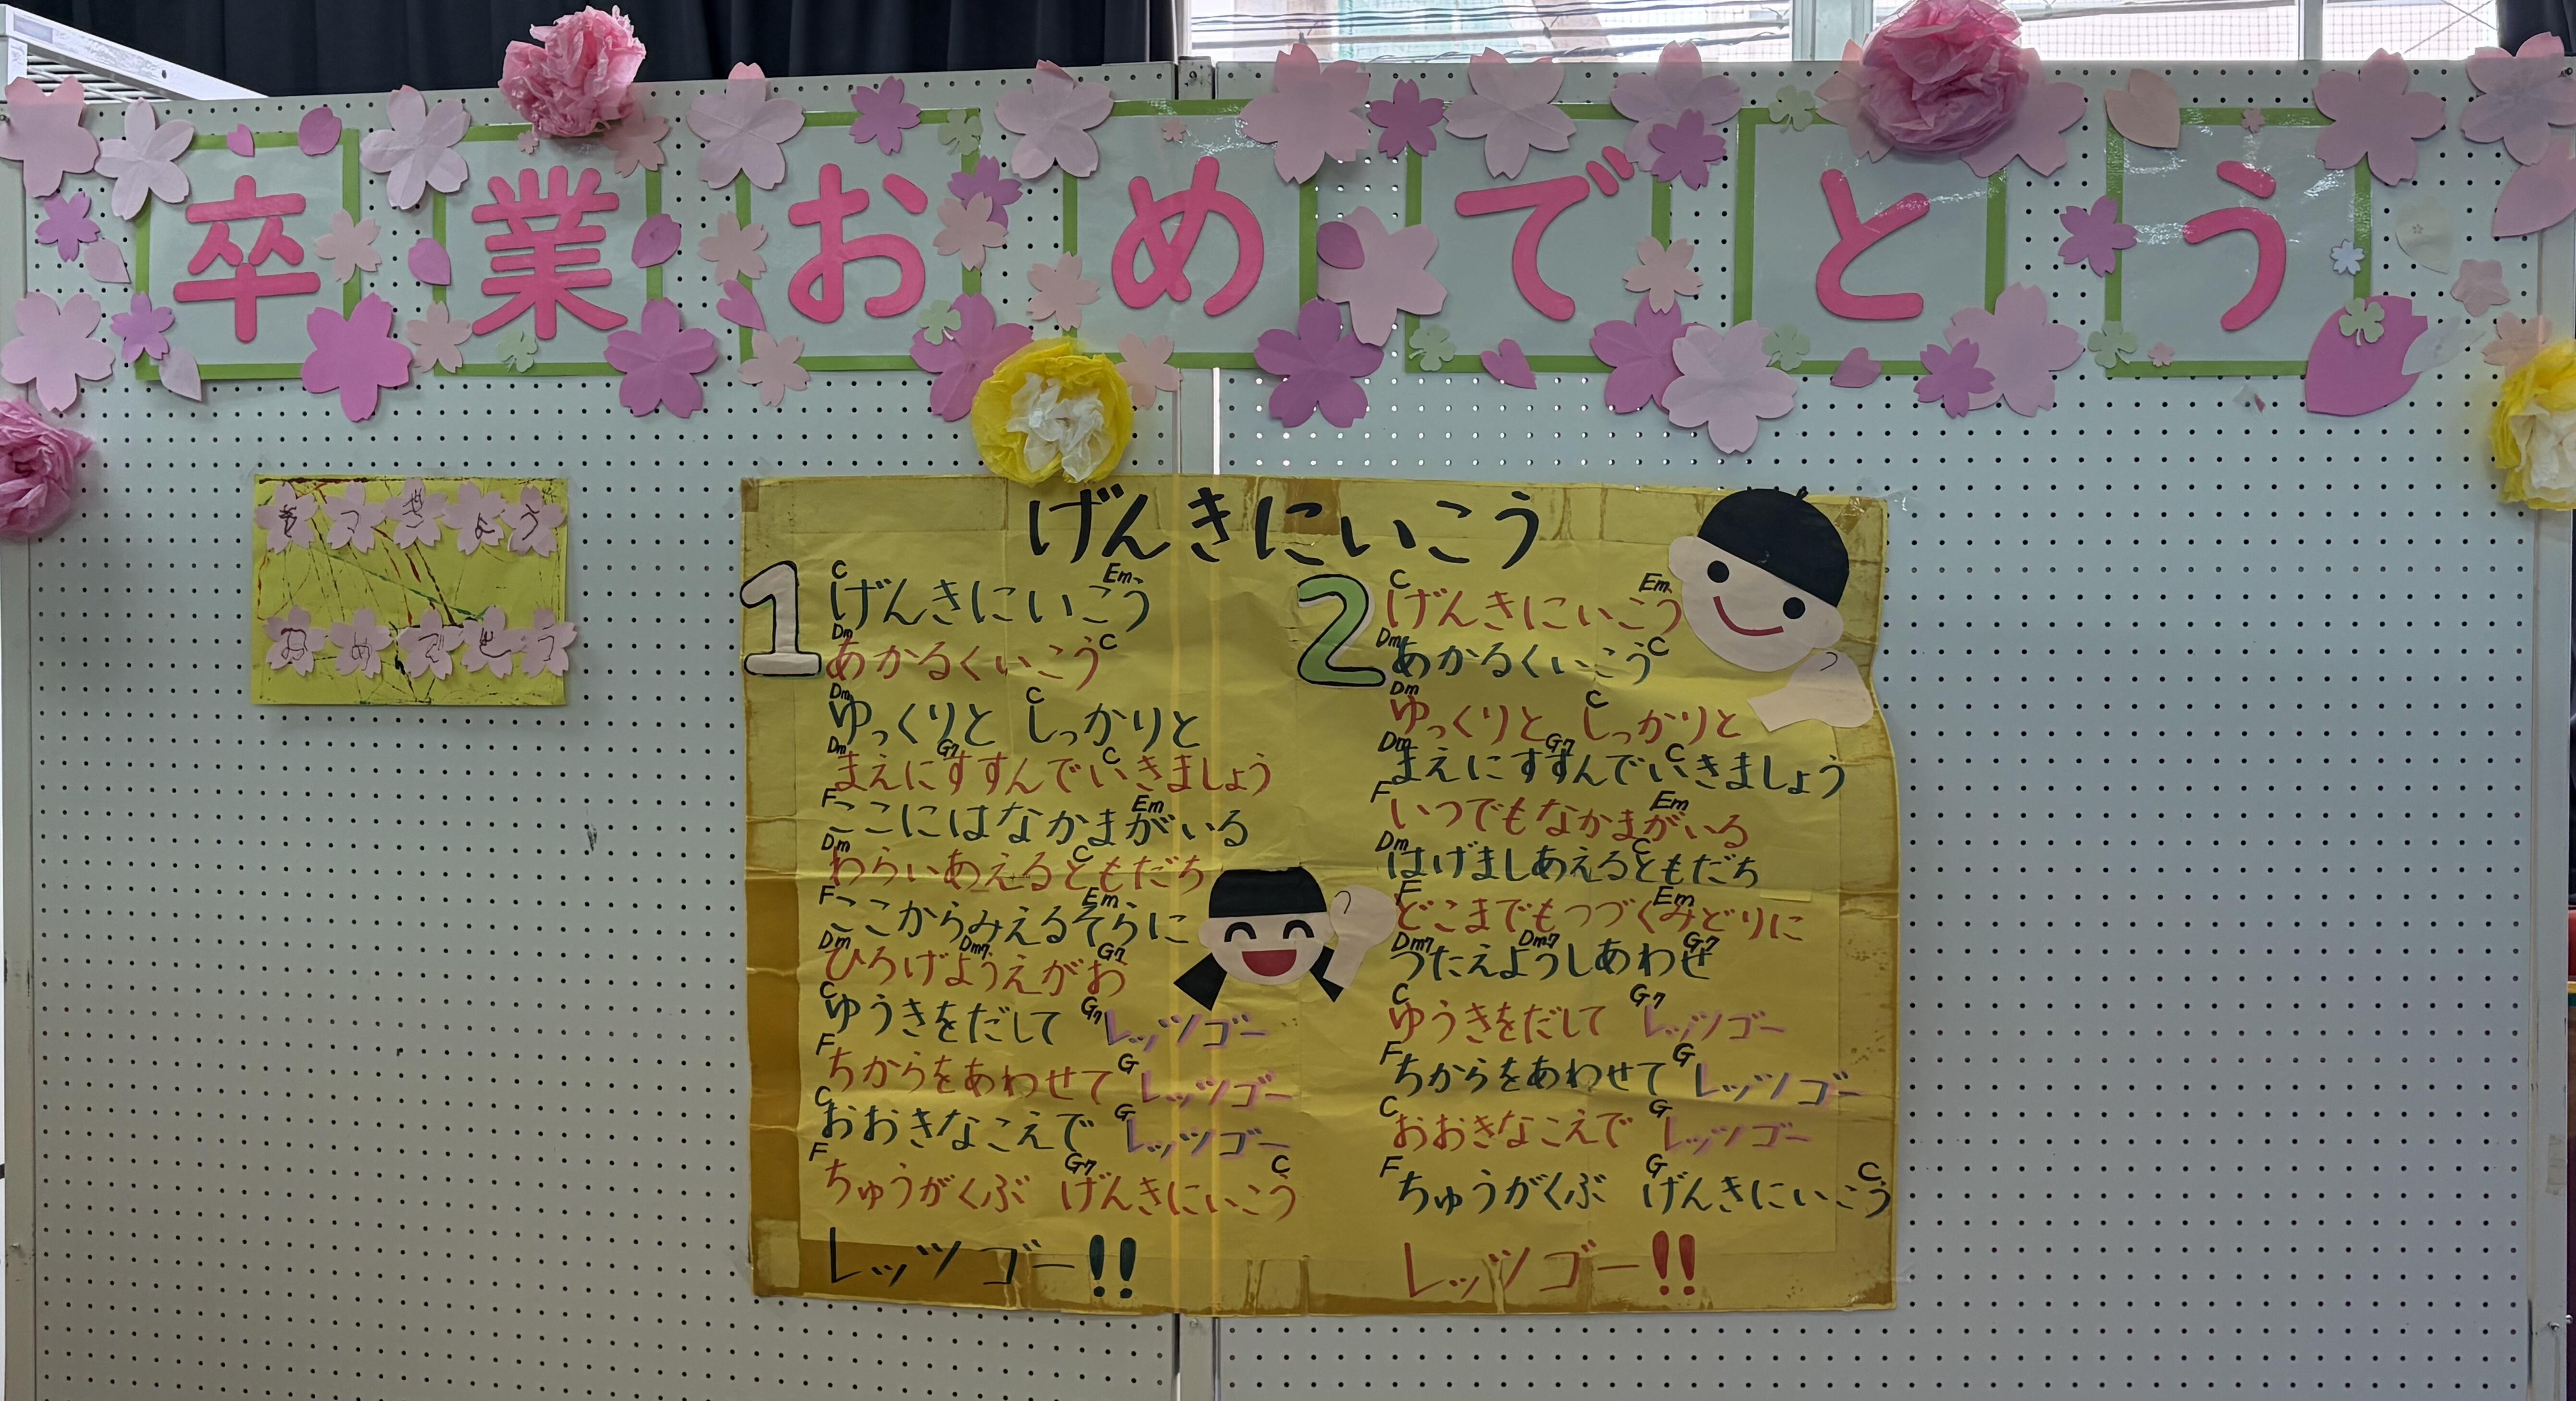 卒業おめでとう
そつぎょう
おめでとう
げんきにいこう
1
C Em
げんきにいこう
Dm C
あかるくいこう
Dm C
ゆっくりと しっかりと
Dm G7 C
まえにすすんでいきましょう
F Em
ここにはなかまがいる
Dm C
わらいあえるともだち
F Em
ここからみえるそらに
Dm Dm7 G7
ひろげようえがお
C G7
ゆうきをだして レッツゴー
F G
ちからをあわせて レッツゴー
C G
おおきなこえで レッツゴー
F G7 C
ちゅうがくぶ げんきにいこう
レッツゴー!!
2
C Em
げんきにいこう
Dm C
あかるくいこう
Dm C
ゆっくりと しっかりと
Dm G7 C
まえにすすんでいきましょう
F Em
いつでもなかまがいる
Dm C
はげましあえるともだち
F Em
どこまでもつづくみどりに
Dm7 Dm7 G7
うたえようしあわせ
C G7
ゆうきをだして レッツゴー
F G
ちからをあわせて レッツゴー
C G
おおきなこえで レッツゴー
F G C
ちゅうがくぶ げんきにいこう
レッツゴー!!